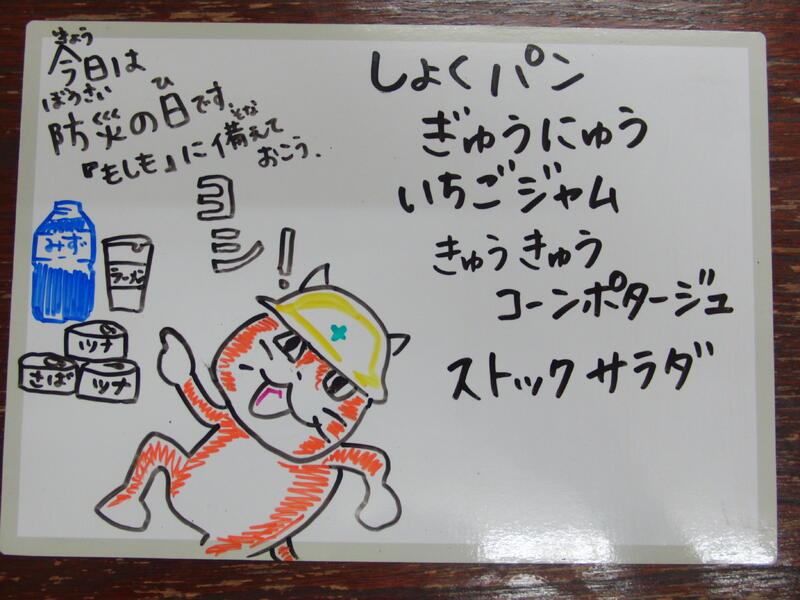 きょう
今日は
ぼうさい ひ
防災の日です。
そな
『もしも』に備えて
おこう。
ヨシ!
みず
ラーメン
ツナ
さば ツナ
しょくパン
ぎゅうにゅう
いちごジャム
きゅうきゅう
コーンポタージュ
ストックサラダ